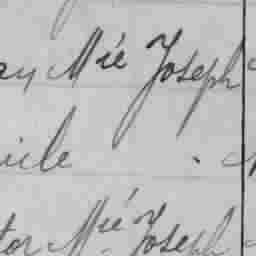 ay Mie Joseph
ile
tor Mie Joseph